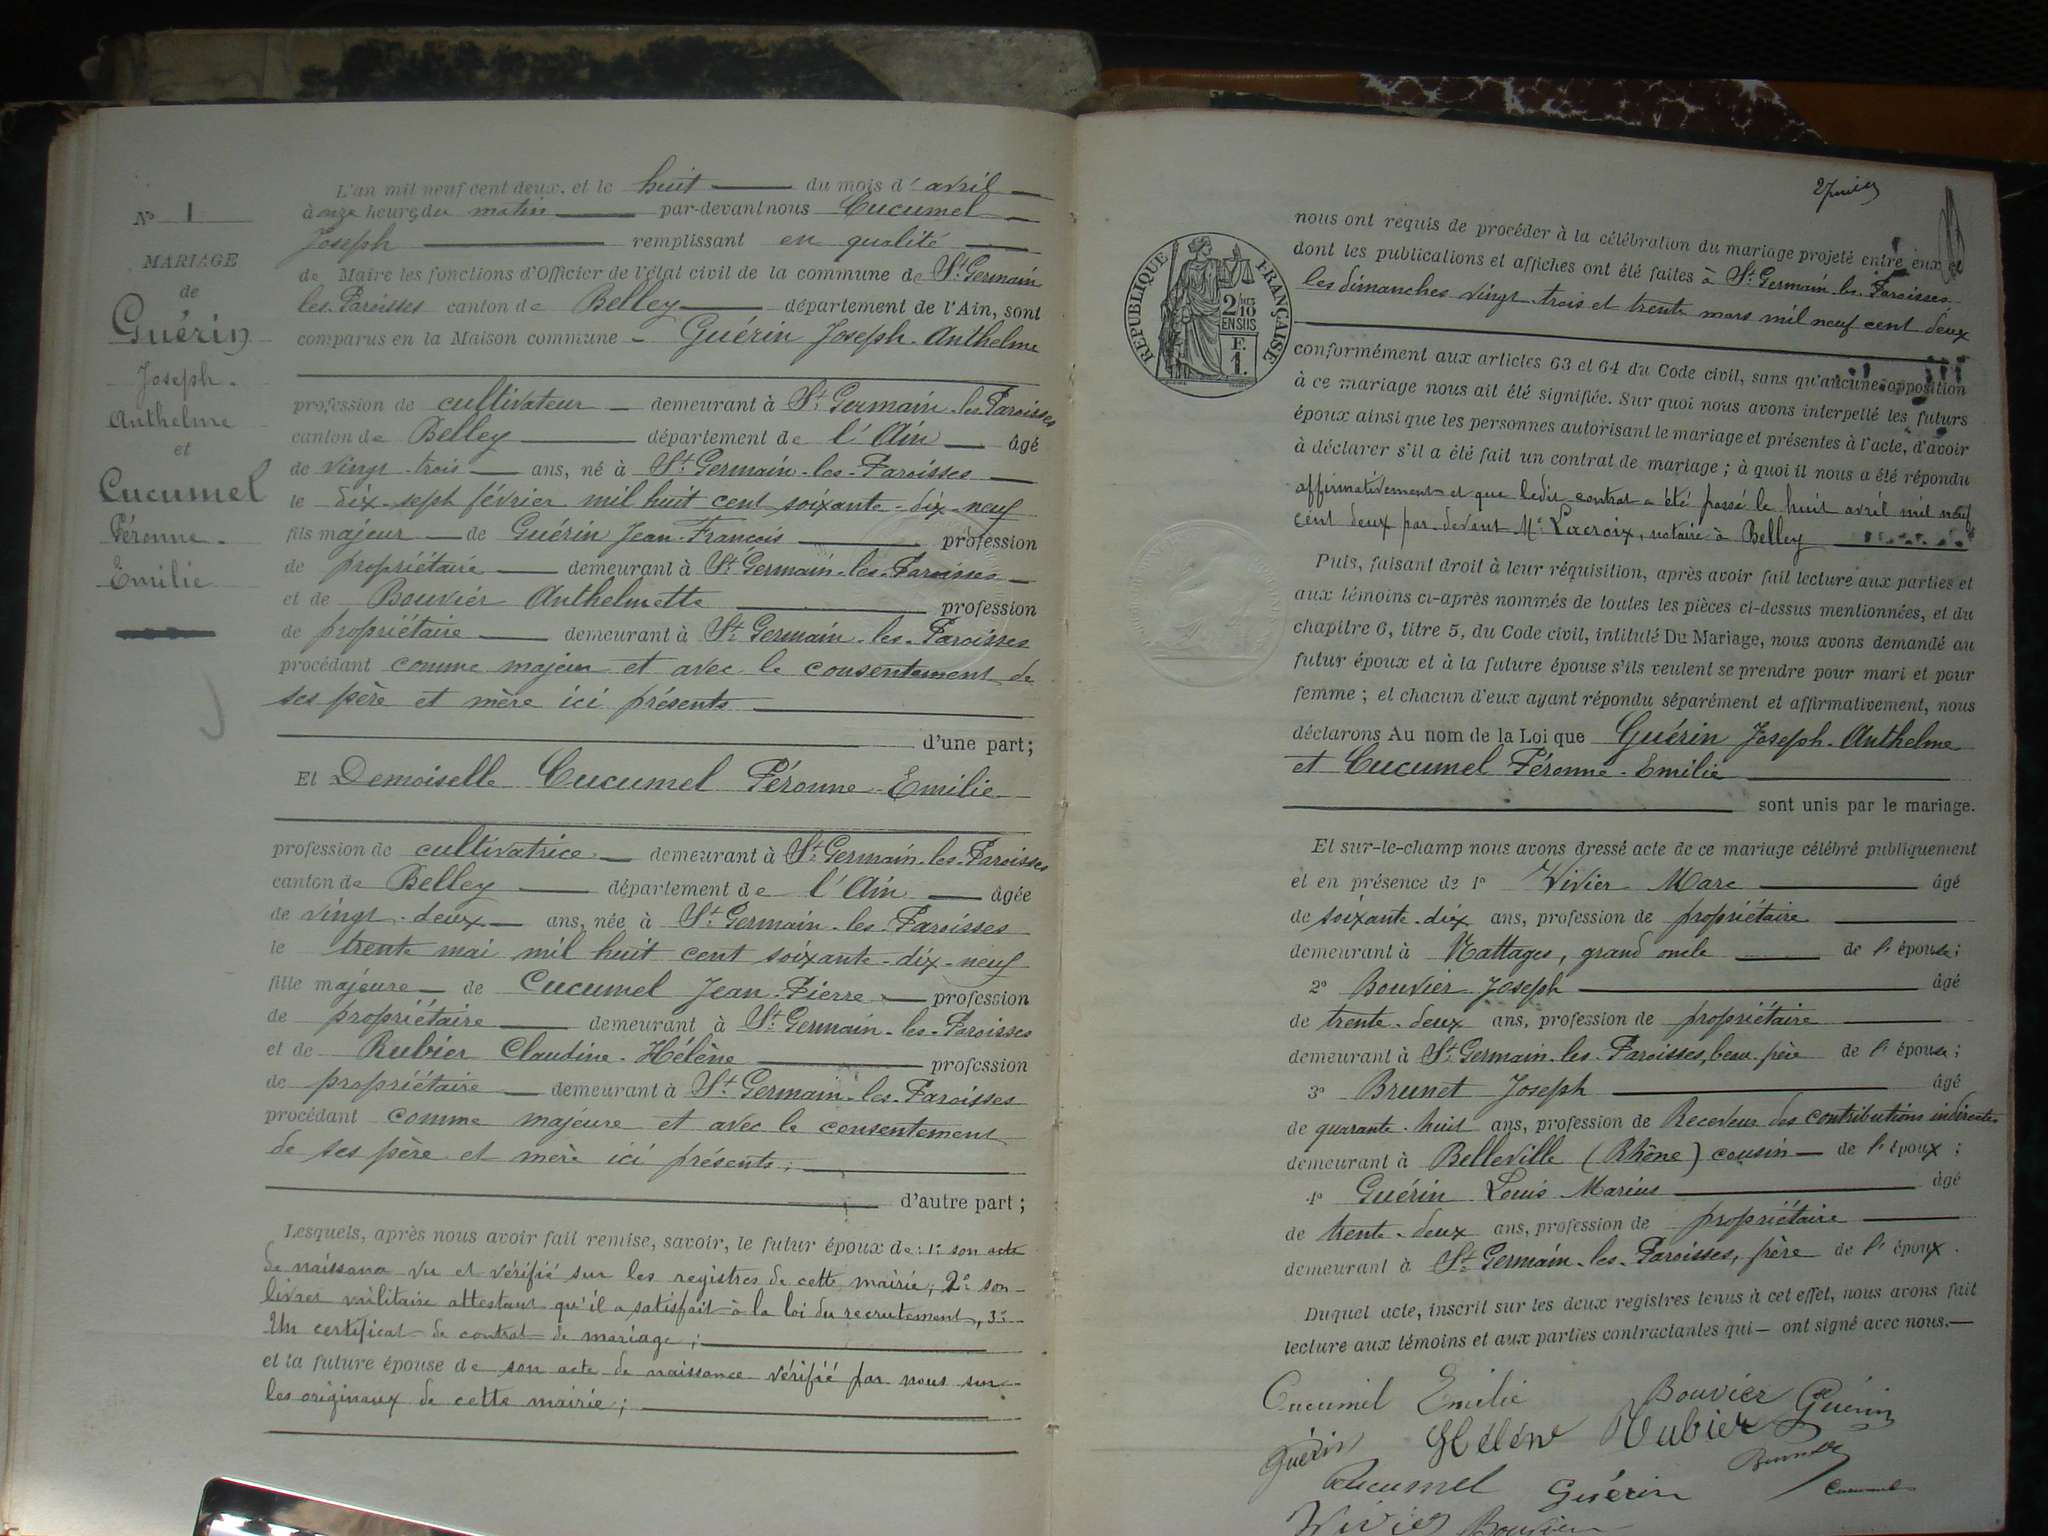 N° 1
MARIAGE
de
Guérin
Joseph-
Anthelme
et
Cucumel
Péronne-
Emilie
L'an mil neuf cent deux, et le huit du mois d'avril
à onze heures du matin par-devant nous Cucumel
Joseph remplissant en qualité
de Maire les fonctions d'Officier de l'état civil de la commune de St Germain
les-Paroisses canton de Belley département de l'Ain, sont
comparus en la Maison commune - Guérin Joseph-Anthelme
profession de cultivateur demeurant à St Germain-les-Paroisses
canton de Belley département de l'Ain âgé
de vingt-trois ans, né à St Germain-les-Paroisses
le dix-sept février mil huit cent soixante-dix-neuf
fils majeur de Guérin Jean-François profession
de propriétaire demeurant à St Germain-les-Paroisses
et de Bouvier Anthelmette profession
de propriétaire demeurant à St Germain-les-Paroisses
procédant comme majeur et avec le consentement de
ses père et mère ici présents
d'une part;
Et Demoiselle Cucumel Péronne-Emilie
profession de cultivatrice demeurant à St Germain-les-Paroisses
canton de Belley département de l'Ain âgée
de vingt-deux ans, née à St Germain-les-Paroisses
le trente mai mil huit cent soixante-dix-neuf
fille majeure de Cucumel Jean-Pierre profession
de propriétaire demeurant à St Germain-les-Paroisses
et de Rubier Claudine-Hélène profession
de propriétaire demeurant à St Germain-les-Paroisses
procédant comme majeure et avec le consentement
de ses père et mère ici présents;
d'autre part;
Lesquels, après nous avoir fait remise, savoir, le futur époux de: 1° son acte
de naissance vu et vérifié sur les registres de cette mairie; 2° son
livret militaire attestant qu'il a satisfait à la loi du recrutement, 3°
Un certificat de contrat de mariage;
et la future épouse de son acte de naissance vérifié par nous sur
les originaux de cette mairie;
RÉPUBLIQUE FRANÇAISE
2/10
EN SUS
F.
1.
nous ont requis de procéder à la célébration du mariage projeté entre eux et
dont les publications et affiches ont été faites à St Germain-les-Paroisses
les dimanches vingt-trois et trente mars mil neuf cent deux
conformément aux articles 63 et 64 du Code civil, sans qu'aucune opposition
à ce mariage nous ait été signifiée. Sur quoi nous avons interpellé les futurs
époux ainsi que les personnes autorisant le mariage et présentes à l'acte, d'avoir
à déclarer s'il a été fait un contrat de mariage; à quoi il nous a été répondu
affirmativement et que ledit contrat a été passé le huit avril mil neuf
cent deux par-devant Me Lacroix, notaire à Belley
Puis, faisant droit à leur réquisition, après avoir fait lecture aux parties et
aux témoins ci-après nommés de toutes les pièces ci-dessus mentionnées, et du
chapitre 6, titre 5, du Code civil, intitulé Du Mariage, nous avons demandé au
futur époux et à la future épouse s'ils veulent se prendre pour mari et pour
femme; et chacun d'eux ayant répondu séparément et affirmativement, nous
déclarons Au nom de la Loi que Guérin Joseph-Anthelme
et Cucumel Péronne-Emilie
sont unis par le mariage.
Et sur-le-champ nous avons dressé acte de ce mariage célébré publiquement
et en présence de 1° Vivier Marc âgé
de soixante-dix ans, profession de propriétaire
demeurant à Nattages, grand oncle de l'épouse;
2° Bouvier Joseph âgé
de trente-deux ans, profession de propriétaire
demeurant à St Germain-les-Paroisses, beau-père de l'épouse;
3° Brunet Joseph âgé
de quarante-huit ans, profession de Receveur des contributions indirectes
demeurant à Belleville (Rhône) cousin de l'époux;
4° Guérin Louis Marius âgé
de trente-deux ans, profession de propriétaire
demeurant à St Germain-les-Paroisses, frère de l'époux.
Duquel acte, inscrit sur les deux registres tenus à cet effet, nous avons fait
lecture aux témoins et aux parties contractantes qui ont signé avec nous.
Cucumel Emilie Bouvier Guérin
Guérin Hélène Rubier
Cucumel Guérin Cucumel
Vivier Bouvier